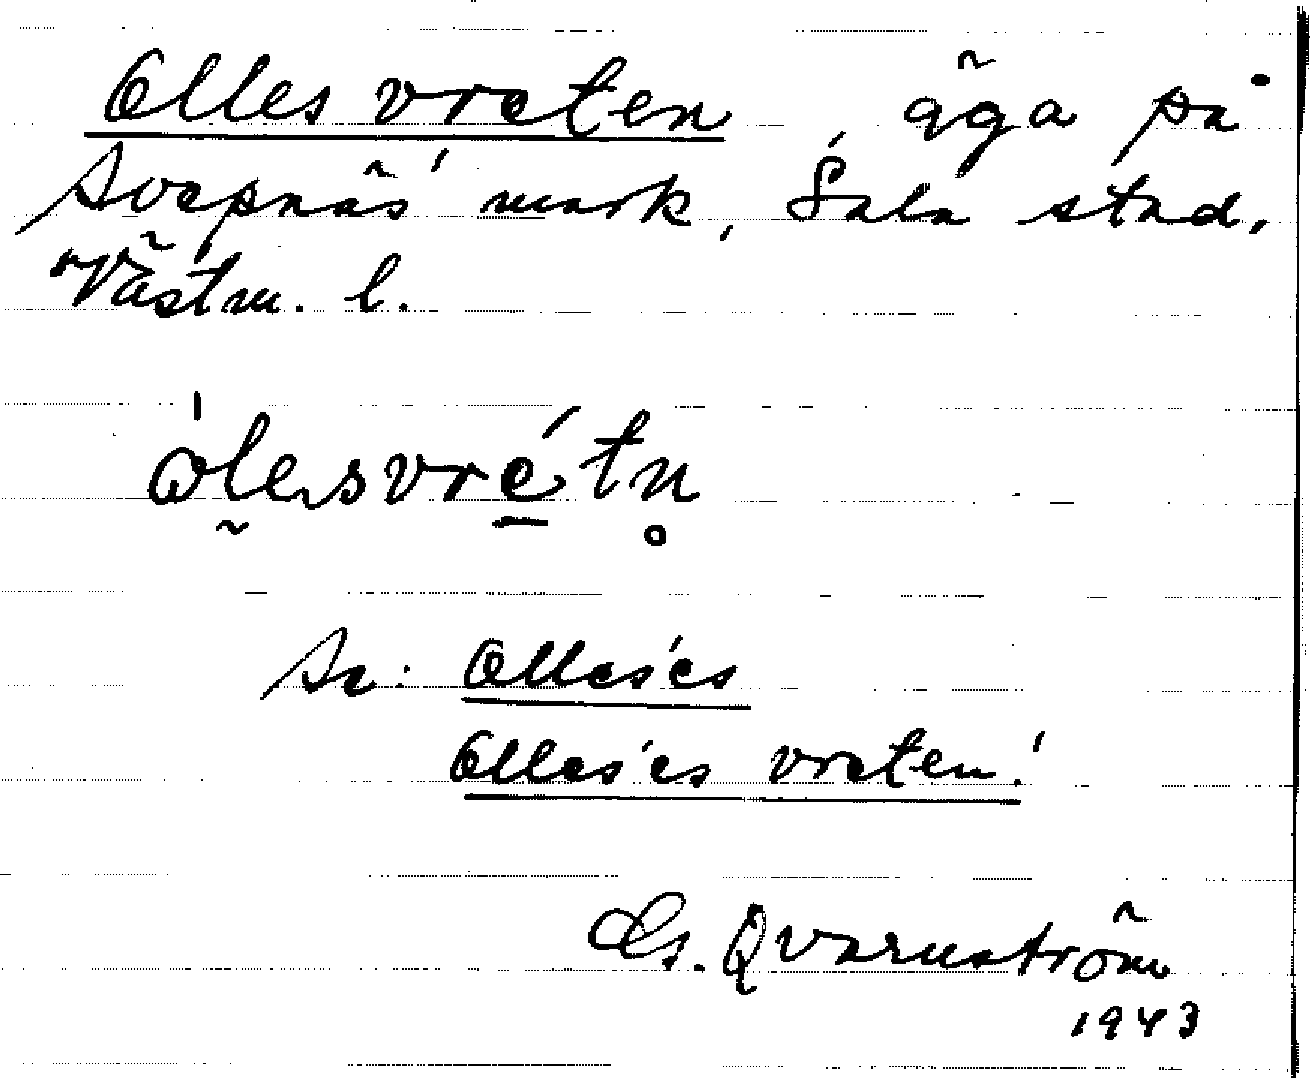 Ollesvreten, äga på
Svepnäs' mark, Sala stad,
Västm. l.
Se: Olles'es
Olles'es vreten!
Qvarnström
1943